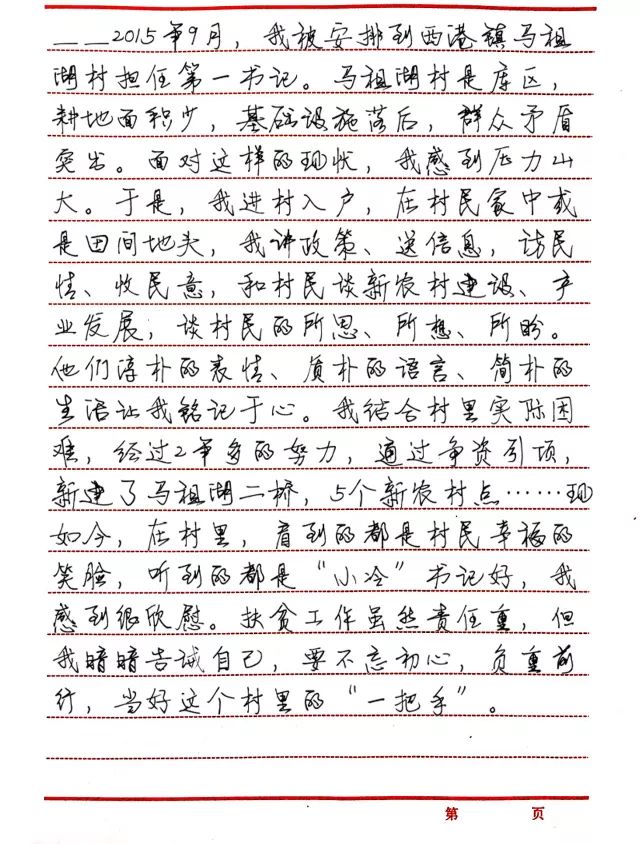 __ __2015年9月，我被安排到西港镇马祖
湖村担任第一书记。马祖湖村是库区，
耕地面积少，基础设施落后，群众矛盾
突出。面对这样的现状，我感到压力山
大。于是，我进村入户，在村民家中或
是田间地头，我讲政策、送信息，访民
情、收民意，和村民谈新农村建设、产
业发展，谈村民的所思、所想、所盼。
他们淳朴的表情、质朴的语言、简朴的
生活让我铭记于心。我结合村里实际困
难，经过2年多的努力，通过争资引项，
新建了马祖湖二桥，5个新农村点……现
如今，在村里，看到的都是村民幸福的
笑脸，听到的都是“小冷”书记好，我
感到很欣慰。扶贫工作虽然责任重，但
我暗暗告诫自己，要不忘初心，负重前
行，当好这个村里的“一把手”。
第 页